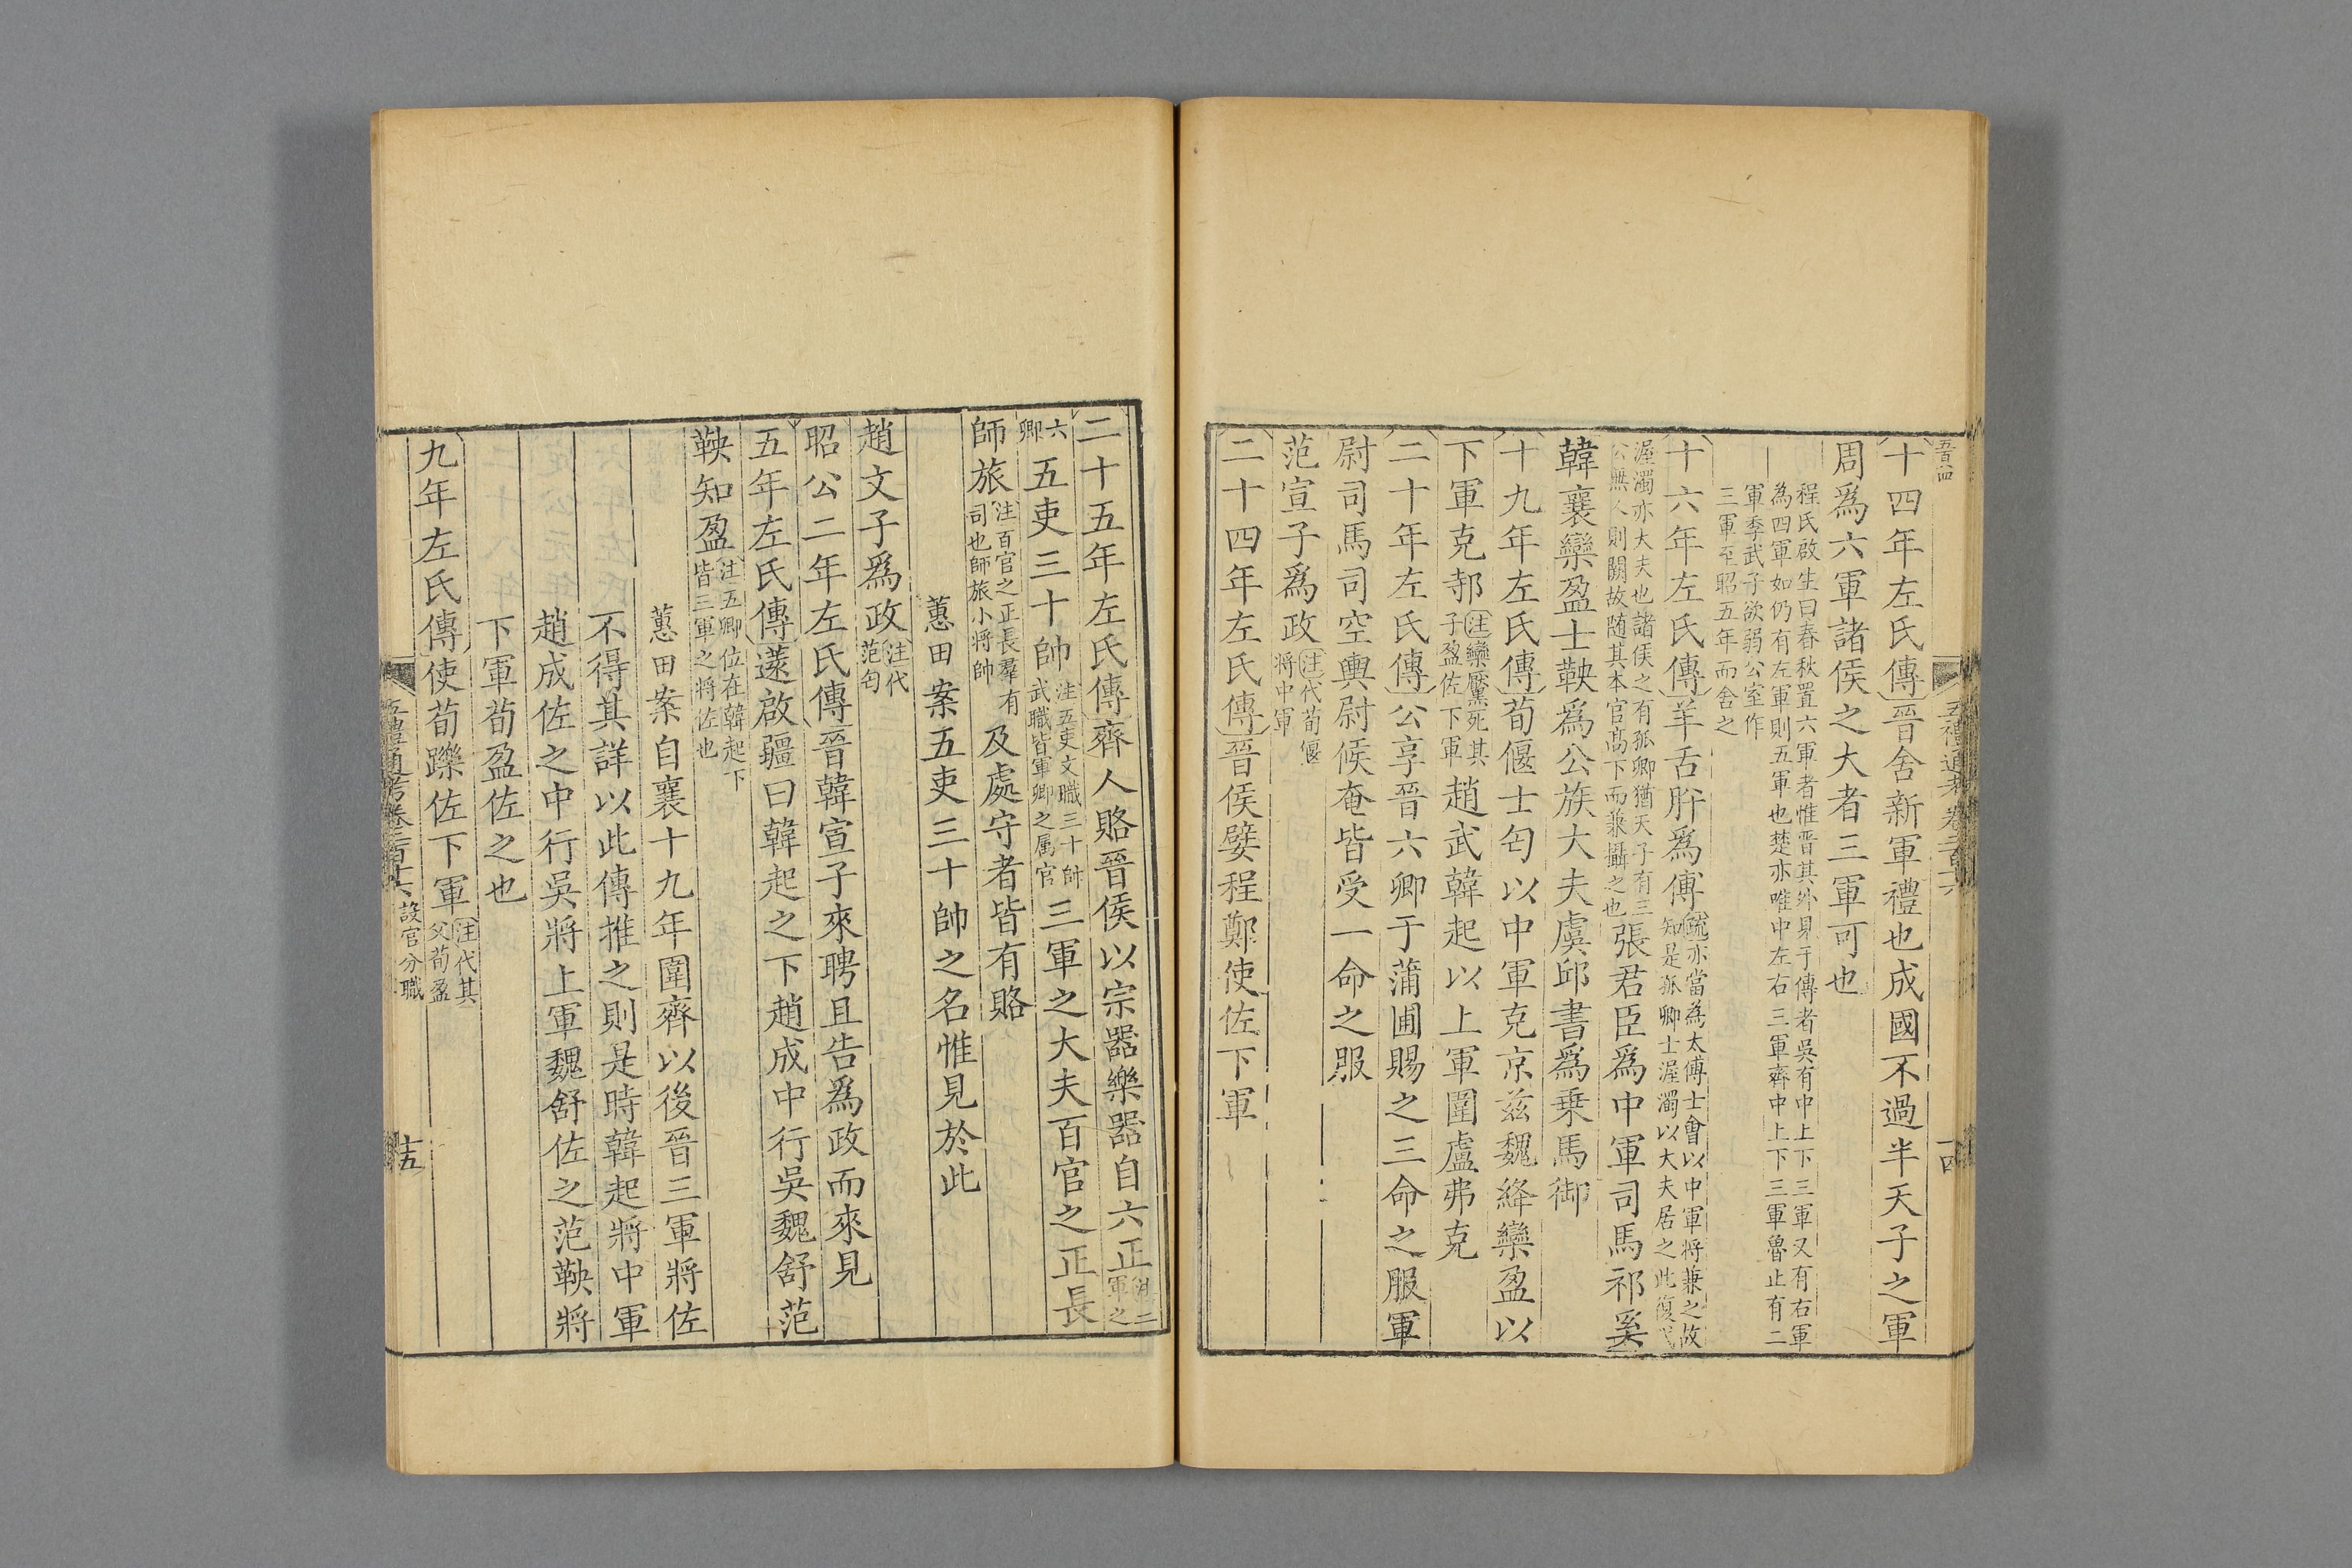 五禮通考卷二百三十六
十四
十四年左氏傳晉舍新軍禮也成國不過半天子之軍
周爲六軍諸侯之大者三軍可也
程氏啟生曰春秋置六軍者惟晉其外見于傳者吳有中上下三軍又有右軍
為四軍如仍有左軍則五軍也楚亦唯中左右三軍齊中上下三軍魯止有二
軍季武子欲弱公室作
三軍至昭五年而舍之
十六年左氏傳羊舌肸爲傅
疏亦當為太傅士會以中軍將兼之故
知是孤卿士渥濁以大夫居之此復代
渥濁亦大夫也諸侯之有孤卿猶天子有三
公無人則闕故随其本官髙下而兼攝之也
張君臣爲中軍司馬祁奚
韓襄欒盈士鞅爲公族大夫虞邱書爲乗馬御
十九年左氏傳荀偃士匄以中軍克京兹魏絳欒盈以
下軍克邿
注欒黶死其
子盈佐下軍
趙武韓起以上軍圍盧弗克
二十年左氏傳公享晉六卿于蒲圃賜之三命之服軍
尉司馬司空輿尉候奄皆受一命之服
范宣子爲政
注代荀偃
將中軍
二十四年左氏傳晉侯嬖程鄭使佐下軍
二十五年左氏傳齊人賂晉侯以宗器樂器自六正
注三
軍之
六
卿
五吏三十帥
注五吏文職三十帥
武職皆軍卿之属官
三軍之大夫百官之正長
師旅
注百官之正長羣有
司也師旅小將帥
及處守者皆有賂
蕙田案五吏三十帥之名惟見於此
趙文子爲政
注代
范匄
昭公二年左氏傳晉韓宣子來聘且告爲政而來見
五年左氏傳薳啟疆曰韓起之下趙成中行吳魏舒范
鞅知盈
注五卿位在韓起下
皆三軍之將佐也
蕙田案自襄十九年圍齊以後晉三軍將佐
不得其詳以此傳推之則是時韓起將中軍
趙成佐之中行吳將上軍魏舒佐之范鞅將
下軍荀盈佐之也
九年左氏傳使荀躒佐下軍
注代其
父荀盈
五禮通考卷二百三十六
設官分職
十五